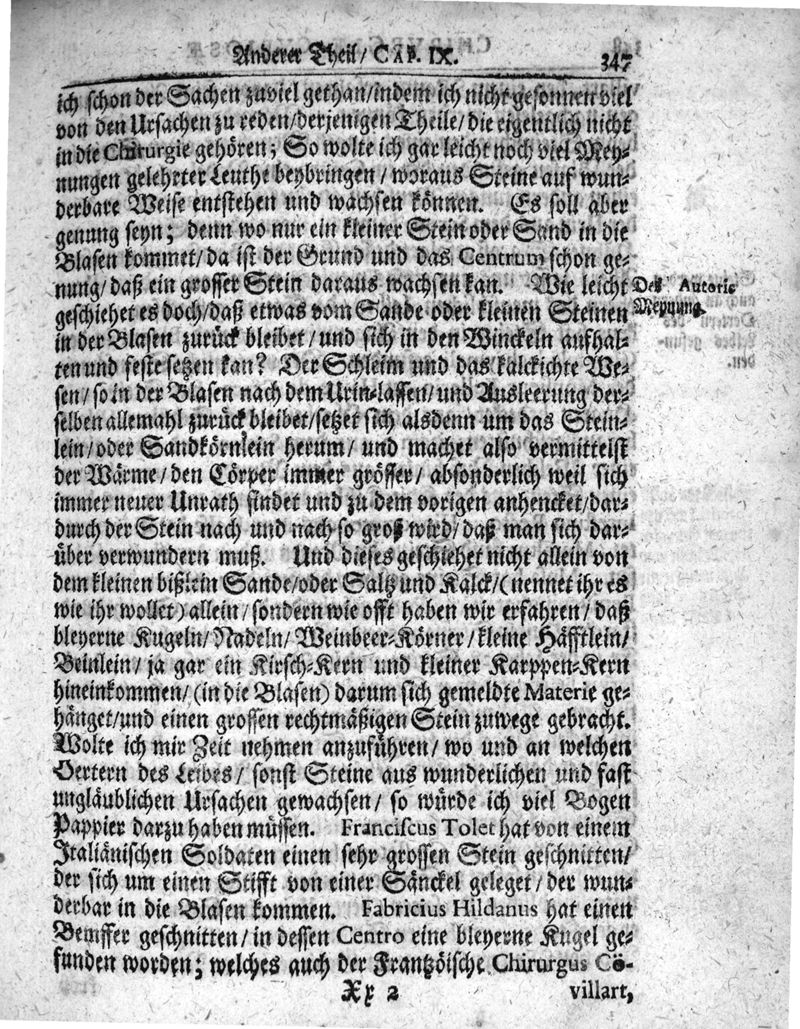 Anderer Theil/ CAP. IX. 347
ich schon der Sachen zuviel gethan/indem ich nicht gesonnen viel
von den Ursachen zu reden/derjenigen Theile/ die eigentlich nicht
in die Chirurgie gehören; So wolte ich gar leicht noch viel Mey-
nungen gelehrter Leuthe beybringen / woraus Steine auf wun-
derbare Weise entstehen und wachsen können. Es soll aber
genung seyn; denn wo nur ein kleiner Stein oder Sand in die
Blasen kommet/ da ist der Grund und das Centrum schon ge-
nung/ daß ein grosser Stein daraus wachsen kan. Wie leicht
Des Autoris
Meynung.
geschiehet es doch/daß etwas vom Sande oder kleinen Steinen
in der Blasen zurück bleibet / und sich in den Winckeln aufhal-
ten und feste setzen kan? Der Schleim und das kalckichte We-
sen/ so in der Blasen nach dem Urin-lassen/ und Ausleerung der-
selben allemahl zurück bleibet/setzet sich alsdenn um das Stein-
lein/ oder Sandkörnlein herum/ und machet also vermittelst
der Wärme/ den Cörper immer grösser/ absonderlich weil sich
immer neuer Unrath findet und zu dem vorigen anhencket/dar-
durch der Stein nach und nach so groß wird/ daß man sich dar-
über verwundern muß. Und dieses geschiehet nicht allein von
dem kleinen bißlein Sande/oder Saltz und Kalck/ (nennet ihr es
wie ihr wollet) allein/ sondern wie offt haben wir erfahren/ daß
bleyerne Kugeln/ Nadeln/ Weinbeer-Körner/ kleine Häfftlein/
Beinlein/ ja gar ein Kirsch-Kern und kleiner Karppen-Kern
hineinkommen/ (in die Blasen) darum sich gemeldte Materie ge-
hänget/und einen grossen rechtmäßigen Stein zuwege gebracht.
Wolte ich mir Zeit nehmen anzuführen/ wo und an welchen
Oertern des Leibes/ sonst Steine aus wunderlichen und fast
ungläublichen Ursachen gewachsen/ so würde ich viel Bogen
Pappier darzu haben müssen. Franciscus Tolet hat von einem
Italiänischen Soldaten einen sehr grossen Stein geschnitten/
der sich um einen Stifft von einer Sänckel geleget/ der wun-
derbar in die Blasen kommen. Fabricius Hildanus hat einen
geschnitten/ in dessen Centro eine bleyerne Kugel ge-
funden worden; welches auch der Frantzöische Chirurgus Co-
Xx 2 villart,